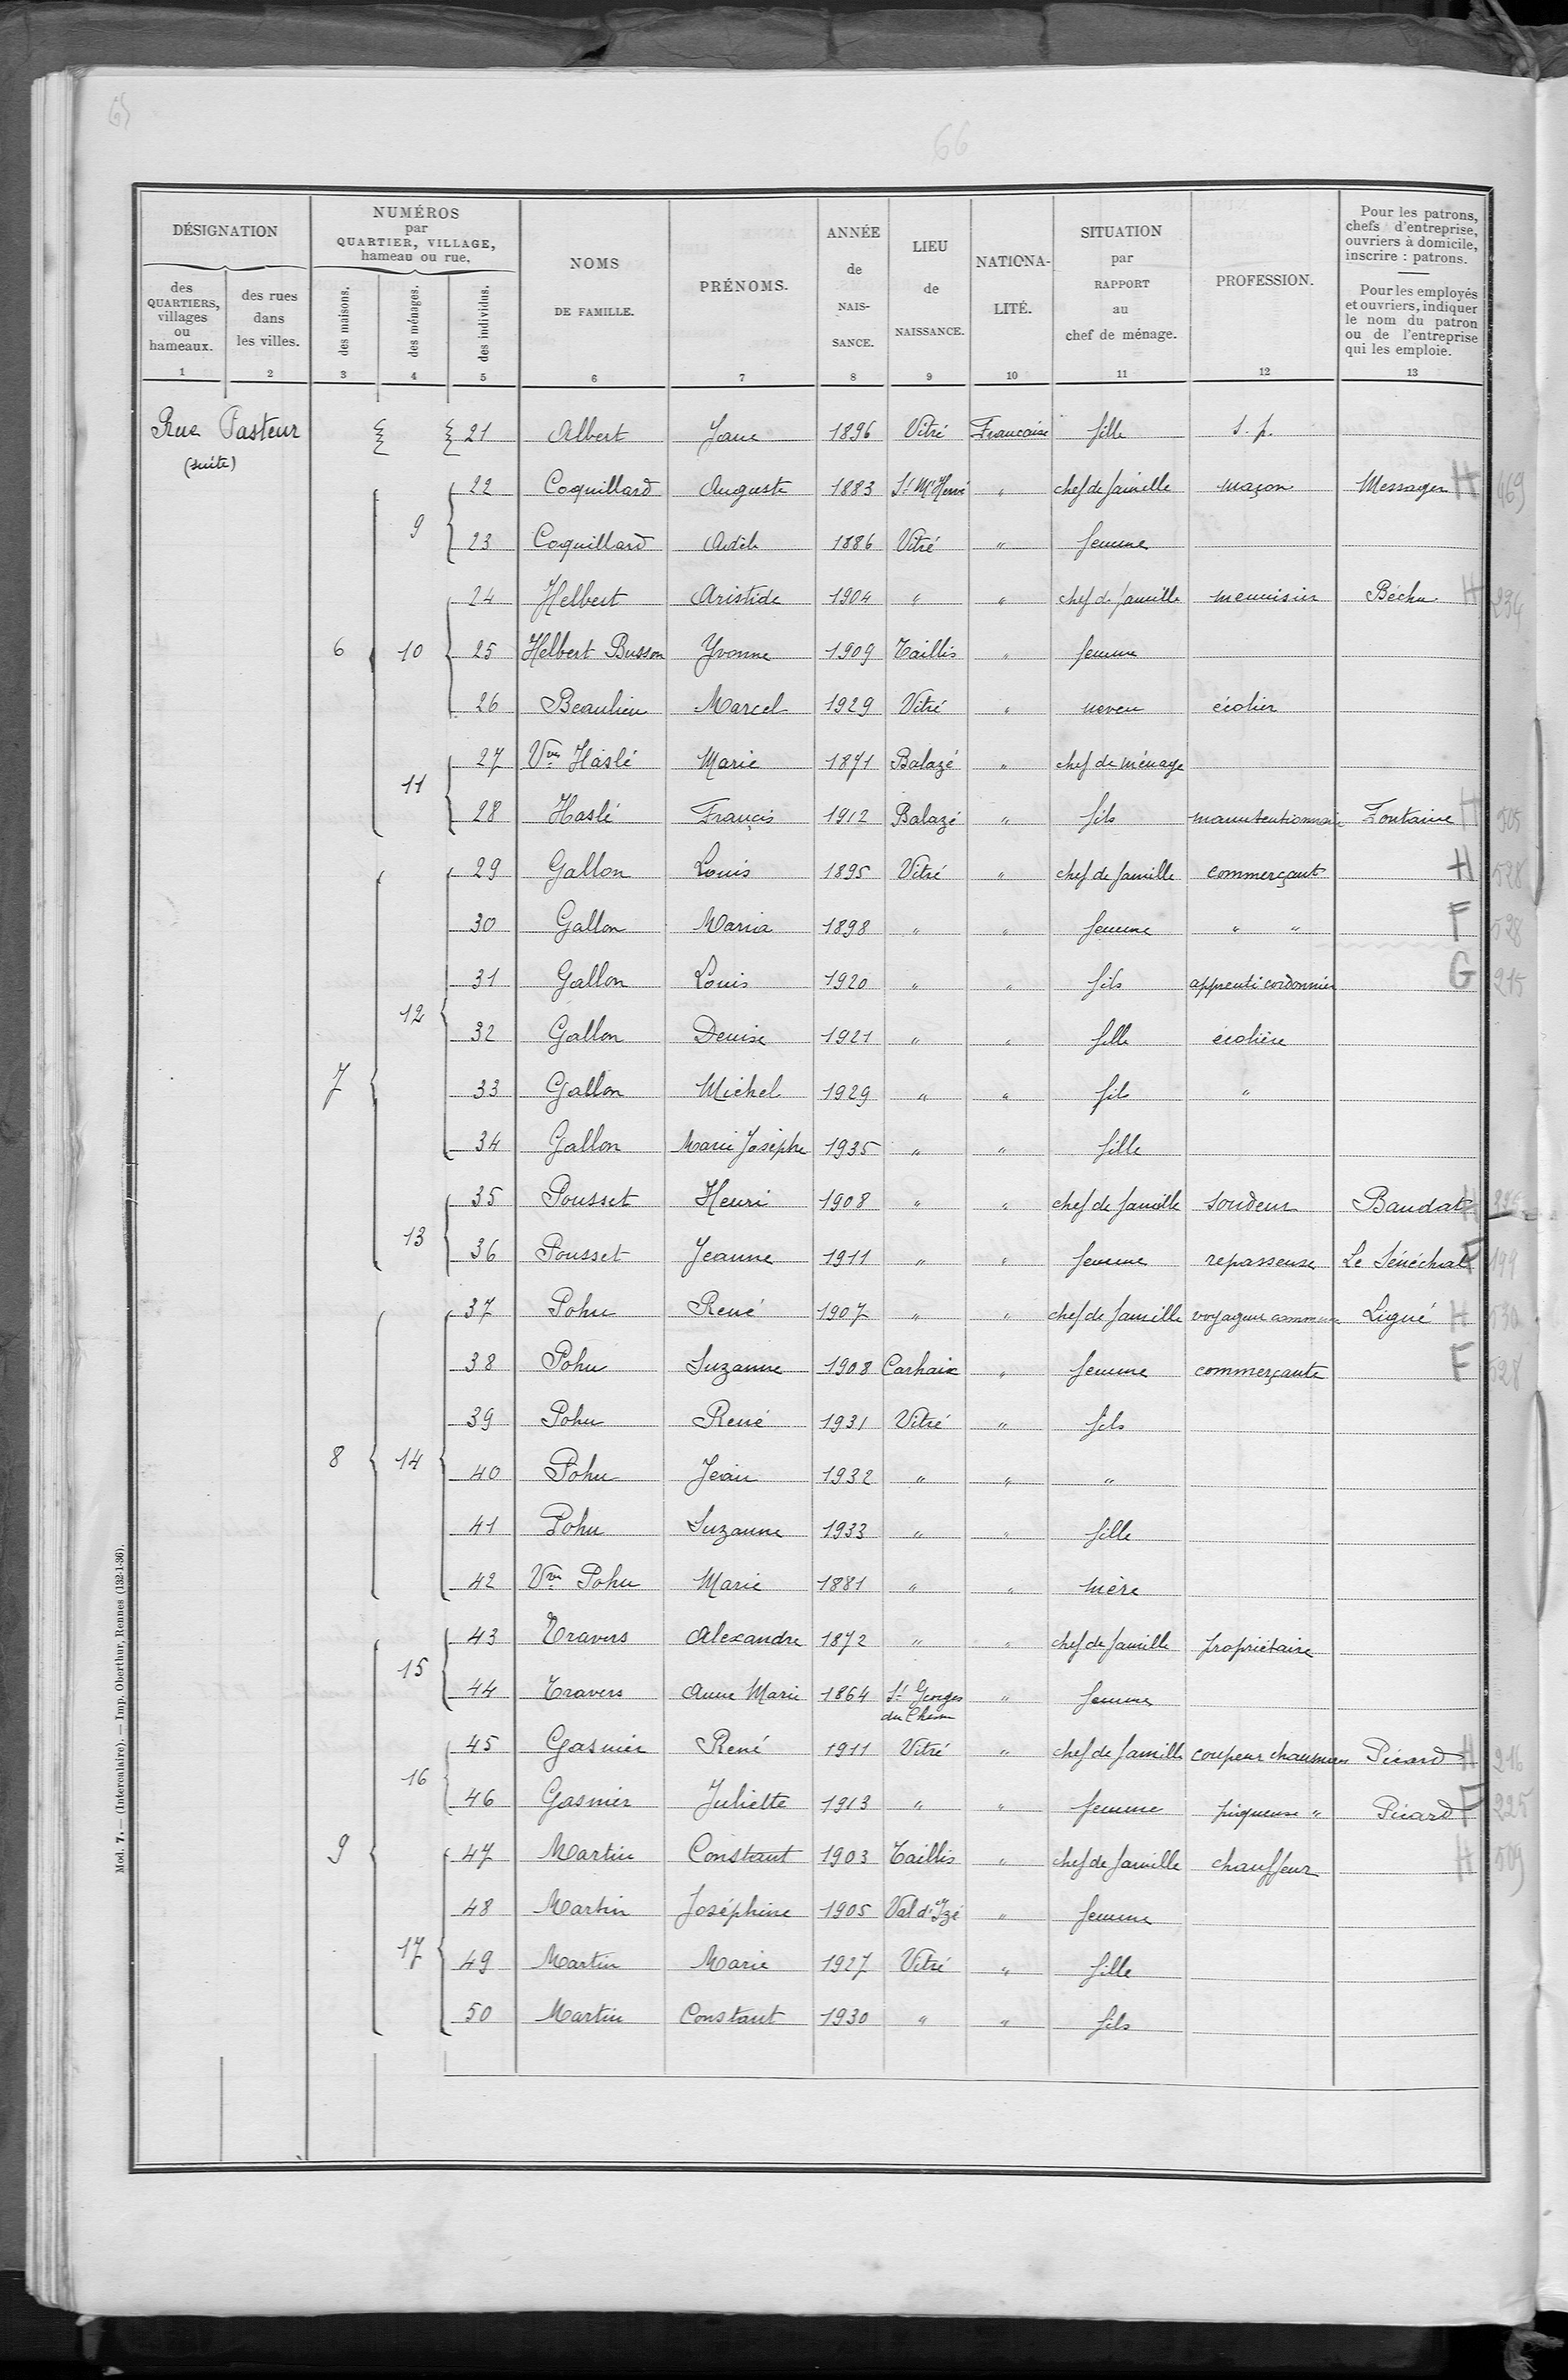 65
66
DÉSIGNATION
des QUARTIERS, villages ou hameaux.
des rues dans les villes.
NUMÉROS par QUARTIER, VILLAGE, hameau ou rue.
des maisons.
des ménages.
des individus.
NOMS DE FAMILLE.
PRÉNOMS.
ANNÉE de NAIS-SANCE.
LIEU de NAISSANCE.
NATIONA-LITÉ.
SITUATION par RAPPORT au chef de ménage.
PROFESSION.
Pour les patrons, chefs d'entreprise, ouvriers à domicile, inscrire : patrons.
Pour les employés et ouvriers, indiquer le nom du patron ou de l'entreprise qui les emploie.
1 2 3 4 5 6 7 8 9 10 11 12 13
Rue Pasteur 21 Albert Jane 1896 Vitré Francaise fille s. p.
(suite)
22 Coquillard Auguste 1883 St M. Hervé " chef de famille maçon Messager H 469
9
23 Coquillard Adèle 1886 Vitré " femme
24 Helbert Aristide 1904 " " chef de famille menuisier Béchu H 234
6 10 25 Helbert Busson Yvonne 1909 Taillis " femme
26 Beaulieu Marcel 1929 Vitré " neveu écolier
27 Vve Haslé Marie 1871 Balazé " chef de ménage
11
28 Haslé Françis 1912 Balazé " fils manutentionnaire Fontaine H 505
29 Gallon Louis 1895 Vitré " chef de famille commerçant H 528
30 Gallon Maria 1898 " " femme " " F 528
31 Gallon Louis 1920 " " fils apprenti cordonnier G 215
12
32 Gallon Denise 1921 " " fille écolière
7 33 Gallon Michel 1929 " " fils "
34 Gallon Marie Josèphe 1935 " " fille
35 Pousset Henri 1908 " " chef de famille soudeur Baudat H
13
36 Pousset Jeanne 1911 " " femme repasseuse Le Sénéchal F 199
37 Pohu René 1907 " " chef de famille voyageur commerce Ligué H 530
38 Pohu Suzanne 1908 Carhaix " femme commerçante F 528
39 Pohu René 1931 Vitré " fils
8 14 40 Pohu Jean 1932 " " "
41 Pohu Suzanne 1933 " " fille
42 Vve Pohu Marie 1881 " " mère
43 Travers Alexandre 1872 " " chef de famille propriétaire
15
44 Travers Anne Marie 1864 St Georges du Chesne " femme
45 Gasnier René 1911 Vitré " chef de famille coupeur chaussures Picard H 216
16
46 Gasnier Juliette 1913 " " femme piqueuse " Picard F 225
9 47 Martin Constant 1903 Taillis " chef de famille chauffeur H 509
48 Martin Joséphine 1905 Val d'Izé " femme
17 49 Martin Marie 1927 Vitré " fille
50 Martin Constant 1930 " " fils
Mod. 7. — (Intercalaire). — Imp. Oberthur, Rennes (132-1-36).